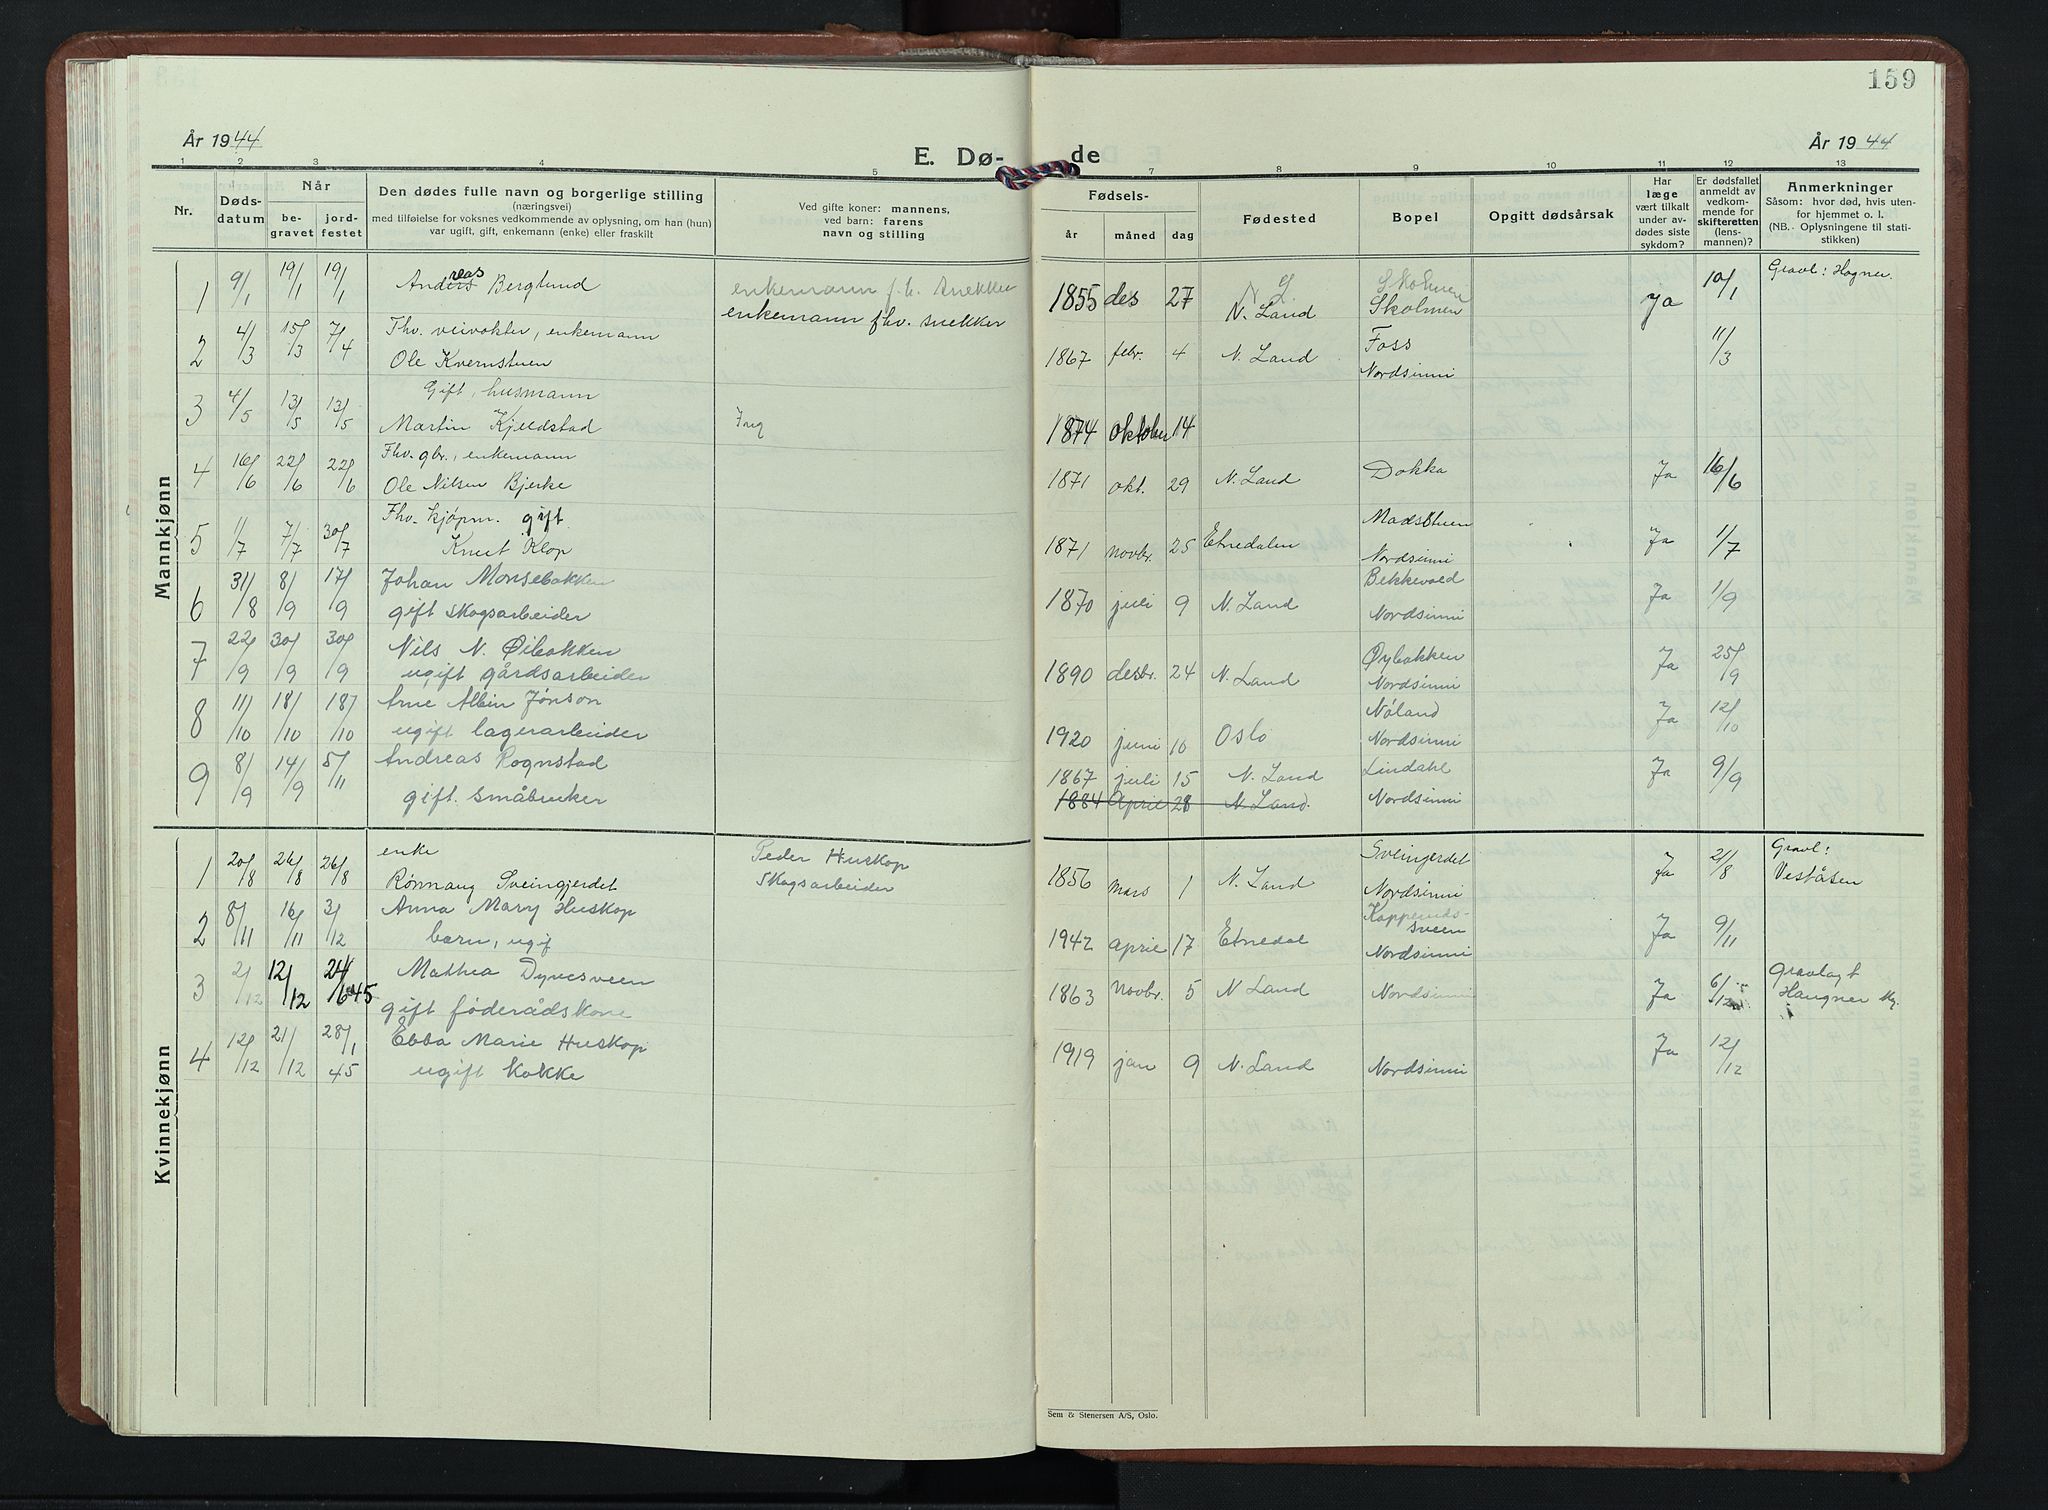 159
År 1944
E. Dø-
de
År 1944
1 2 3 4 5 7 8 9 10 11 12 13
Nr.
Dødsdatum
Når
begravet
jordfestet
Den dødes fulle navn og borgerlige stilling
(næringsvei)
med tilføielse for voksnes vedkommende av oplysning, om han (hun)
var ugift, gift, enkemann (enke) eller fraskilt
Ved gifte koner: mannens,
ved barn: farens
navn og stilling
Fødsels-
år måned dag
Fødested
Bopel
Opgitt dødsårsak
Har
læge
vært tilkalt
under av-
dødes siste
sykdom?
Er dødsfallet
anmeldt av
vedkom-
mende for
skifteretten
(lens-
mannen)?
Anmerkninger
Såsom: hvor død, hvis uten-
for hjemmet o. l.
(NB. Oplysningene til stati-
stikken)
Mannkjønn
1 9/1 19/1 19/1 Andreas Berglund enkemann f.h. snekker 1855 des 27 N. L. Skolmen ja 10/1 Gravl: Hogner.
enkemann fhv. snekker N. Land Skolmen
2 4/3 15/3 7/4 Fhv. veivokter, enkemann 1867 febr. 4 N. Land Foss 11/3
Ole Kvernstuen Nordsinni
3 4/5 13/5 13/5 Gift, husmann
Martin Kjeldstad 1874 oktober 14
4 16/6 22/6 22/6 Fhv. gbr., enkemann 1871 okt. 29 N. Land Dokka Ja 16/6
Ole Nilsen Bjerke
5 1/7 7/7 30/7 Fhv. kjøpm. gift 1871 novbr. 25 Etnedalen Madsstuen Ja 1/7
Knut Klop Nordsinni
6 31/8 8/9 17/9 Johan Monsebakken 1870 juli 9 N. Land Bekkevold Ja 1/9
gift skogsarbeider Nordsinni
7 22/9 30/9 30/9 Nils N. Øibakken 1890 desbr. 24 N. Land Øybakken Ja 25/9
ugift gårdsarbeider Nordsinni
8 11/10 18/10 18/10 Arne Albin Jønson 1920 juni 10 Oslo Nøland Ja 12/10
ugift lagerarbeider Nordsinni
9 8/9 14/9 5/11 Andreas Rognstad 1867 juli 15 N. Land Lindahl Ja 9/9
gift. småbruker 1884 April 28 N. Land. Nordsinni
Kvinnekjønn
1 20/8 26/8 26/8 enke 1856 mars 1 N. Land Sveingjerdet Ja 21/8 Gravl:
Rønnaug Sveingjerdet Nordsinni Veståsen
2 8/11 16/11 3/12 Anna Mary Huskop Peder Huskop 1942 april 17 Etnedal Ja 9/11
barn, ugift Skogsarbeider Nordsinni
3 2/12 12/12 24/6 45 Mathea Dynesveen 1863 novbr. 5 N Land Nordsinni Ja 6/12 Gravlagt
gift føderådskone Haugner
4 12/12 21/12 28/1 45 Ebba Marie Huskop 1919 jan 9 N. Land Nordsinni Ja 12/12
ugift kokke
Sem & Stenersen A/S, Oslo.